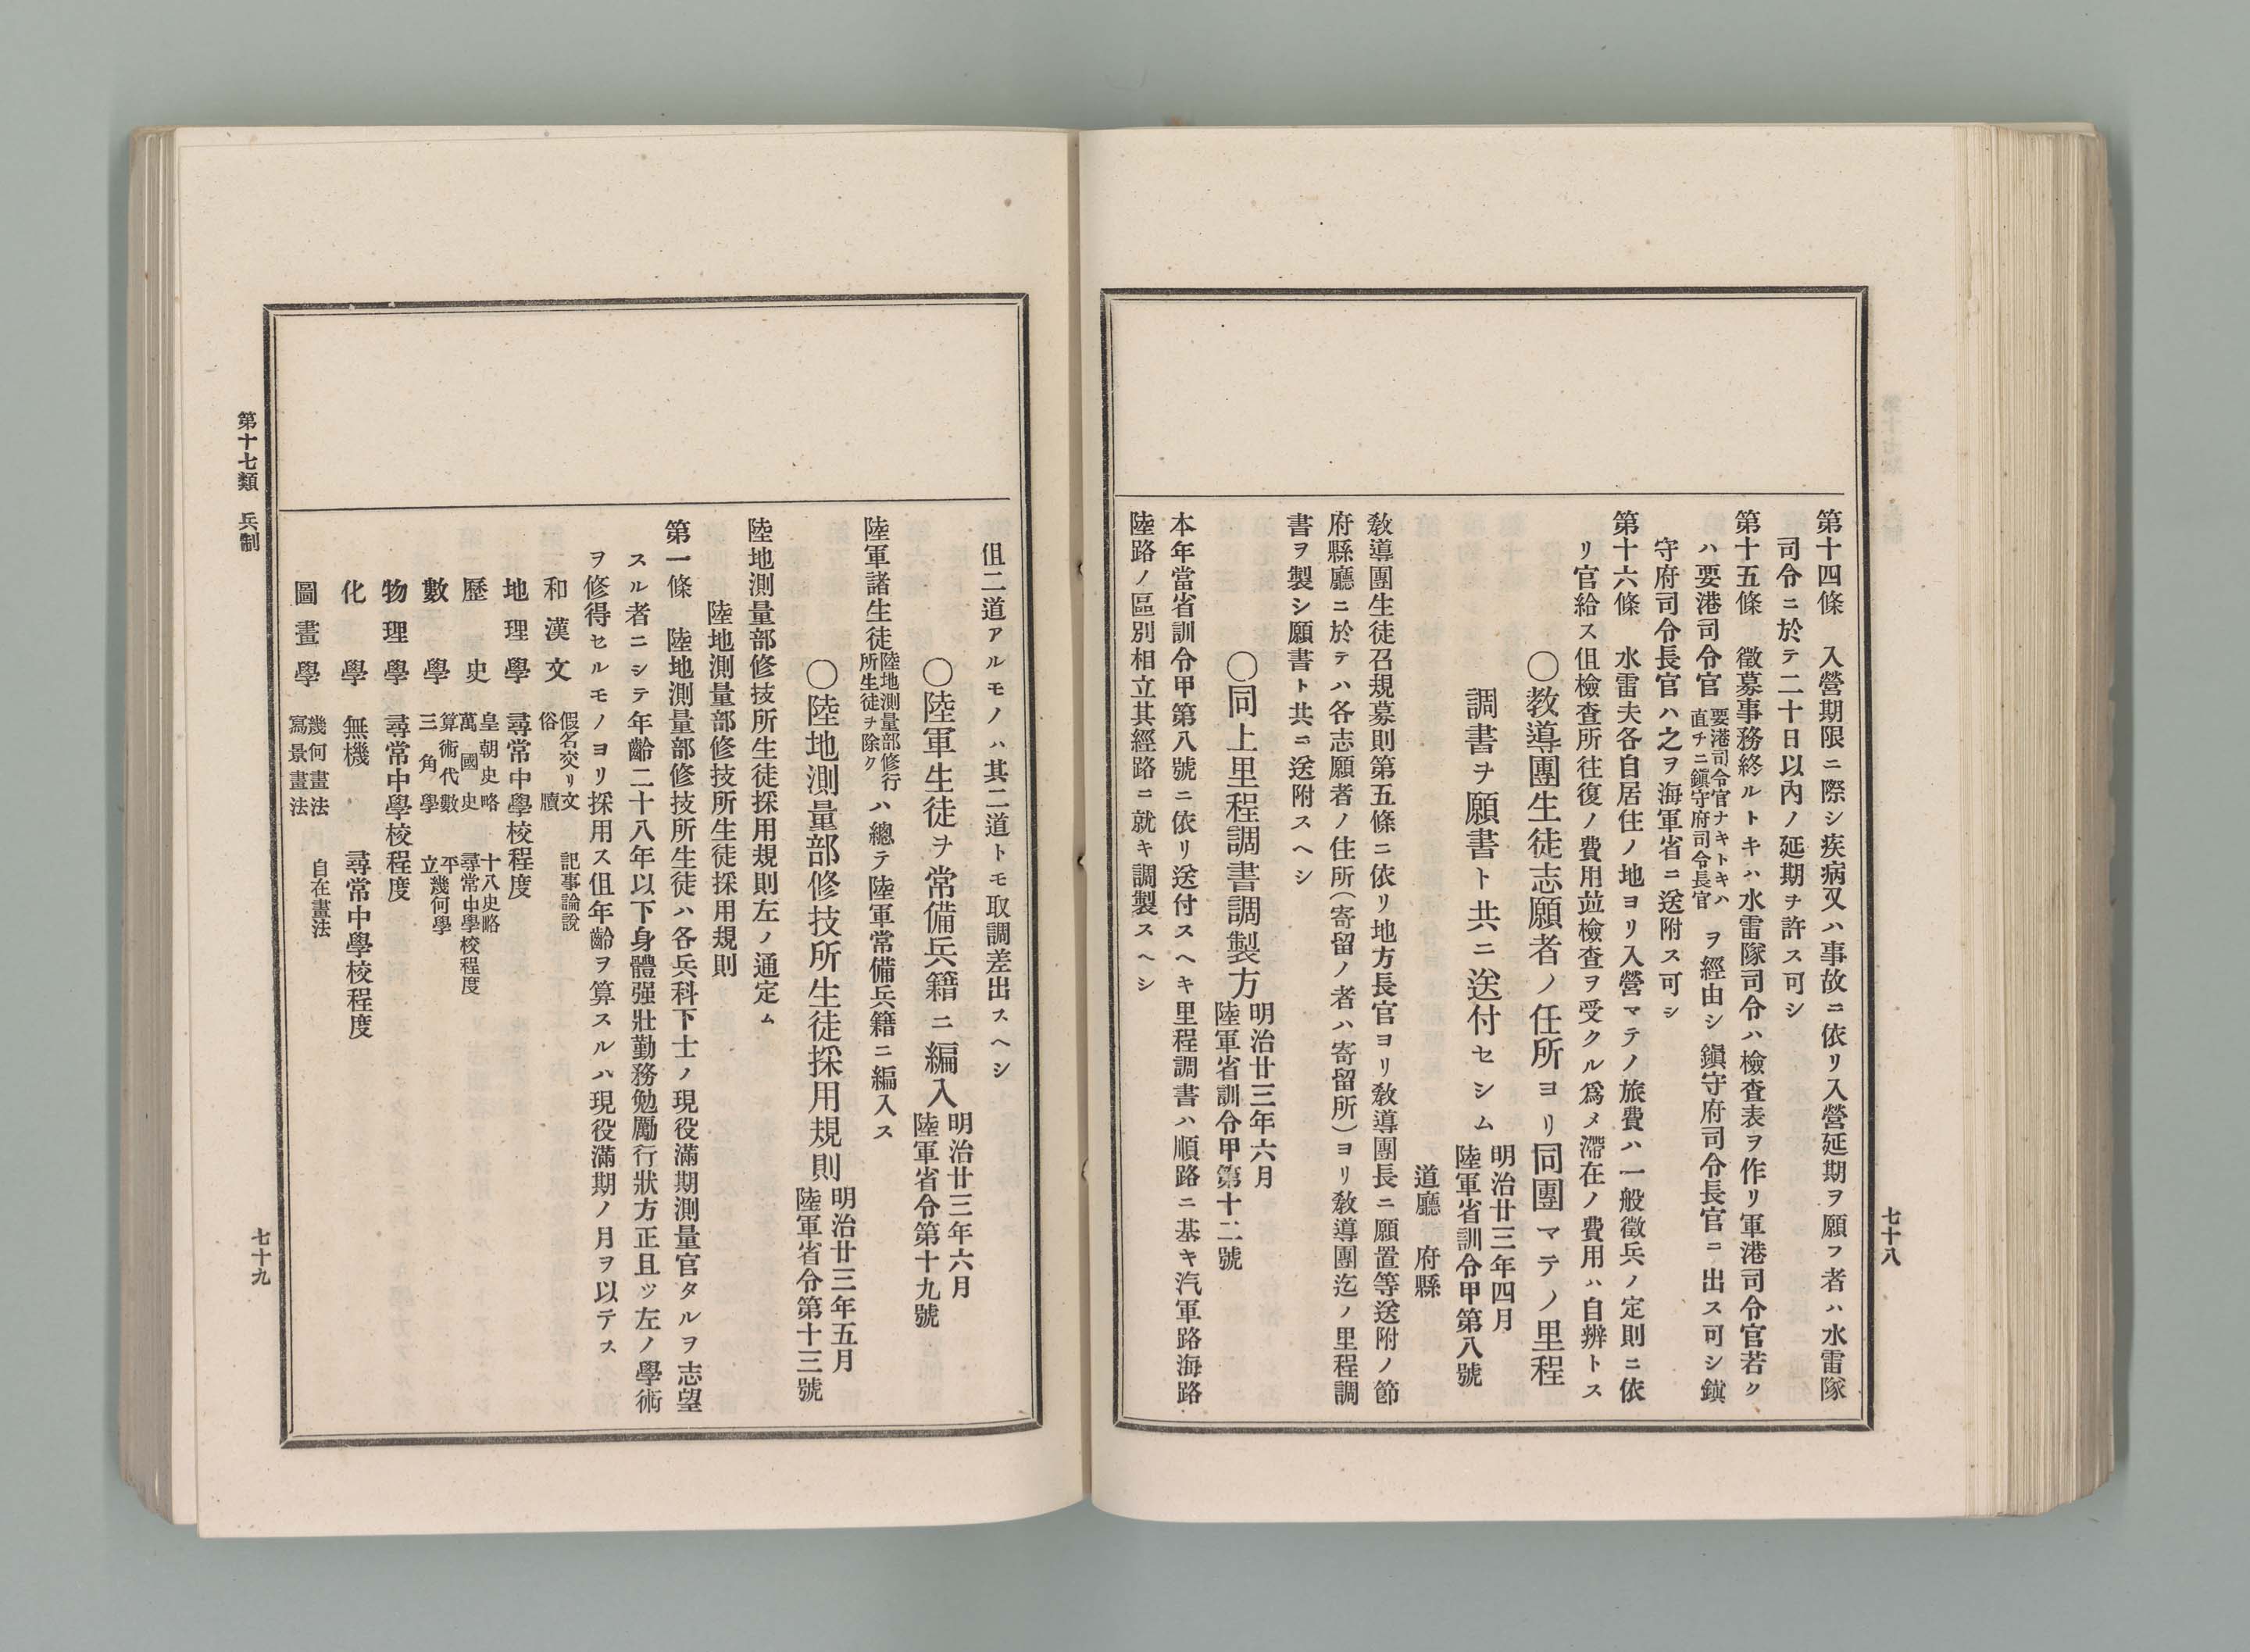 第十四條　入營期限ニ際シ疾病又ハ事故ニ依リ入營延期ヲ願フ者ハ水雷隊
司令ニ於テ二十日以內ノ延期ヲ許ス可シ
第十五條　徵募事務終ルトキハ水雷隊司令ハ檢查表ヲ作リ軍港司令官若ク
ハ要港司令官要港司令官ナキトキハ直チニ鎭守府司令長官ヲ經由シ鎭守府司令長官ニ出ス可シ鎭
守府司令長官ハ之ヲ海軍省ニ送附ス可シ
第十六條　水雷夫各自居住ノ地ヨリ入營マテノ旅費ハ一般徵兵ノ定則ニ依
リ官給ス伹檢查所往復ノ費用竝檢查ヲ受クル爲メ滯在ノ費用ハ自辨トス
〇敎導團生徒志願者ノ任所ヨリ同團マテノ里程
調書ヲ願書ト共ニ送付セシム
明治廿三年四月
陸軍省訓令甲第八號
道廳　府縣
敎導團生徒召規募則第五條ニ依リ地方長官ヨリ敎導團長ニ願置等送附ノ節
府縣廳ニ於テハ各志願者ノ住所（寄留ノ者ハ寄留所）ヨリ敎導團迄ノ里程調
書ヲ製シ願書ト共ニ送附スヘシ
〇同上里程調書調製方
明治廿三年六月
陸軍省訓令甲第十二號
本年當省訓令甲第八號ニ依リ送付スヘキ里程調書ハ順路ニ基キ汽軍路海路
陸路ノ區別相立其經路ニ就キ調製スヘシ
七十八
伹二道アルモノハ其二道トモ取調差出スヘシ
〇陸軍生徒ヲ常備兵籍ニ編入
明治廿三年六月
陸軍省令第十九號
陸軍諸生徒陸地測量部修行所生徒ヲ除クハ總テ陸軍常備兵籍ニ編入ス
〇陸地測量部修技所生徒採用規則
明治廿三年五月
陸軍省令第十三號
陸地測量部修技所生徒採用規則左ノ通定ム
陸地測量部修技所生徒採用規則
第一條　陸地測量部修技所生徒ハ各兵科下士ノ現役滿期測量官タルヲ志望
スル者ニシテ年齡二十八年以下身體强壯勤務勉勵行狀方正且ツ左ノ學術
ヲ修得セルモノヨリ採用ス伹年齡ヲ算スルハ現役滿期ノ月ヲ以テス
和漢文　假名交リ文　記事論說
俗牘
地理學　尋常中學校程度
歷史　皇朝史略　十八史略
萬國史　尋常中學校程度
數學　算術代數　平
三角學　立幾何學
物理學　尋常中學校程度
化學　無機　尋常中學校程度
圖畫學　幾何畫法　自在畫法
寫景畫法
第十七類　兵制
七十九